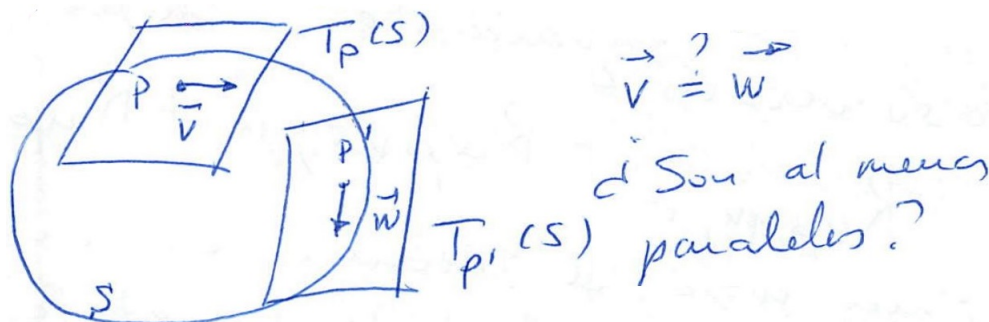 T_p(S)
P
v⃗
v⃗ ≟ w⃗
P'
w⃗
¿Son al menos
T_p'(S)
paralelos?
S